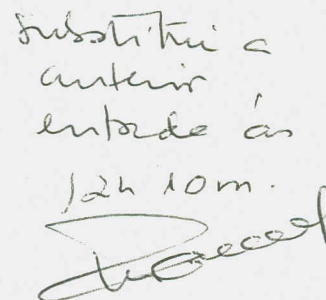 substitui a
anterior
entrada às
12h 10m.